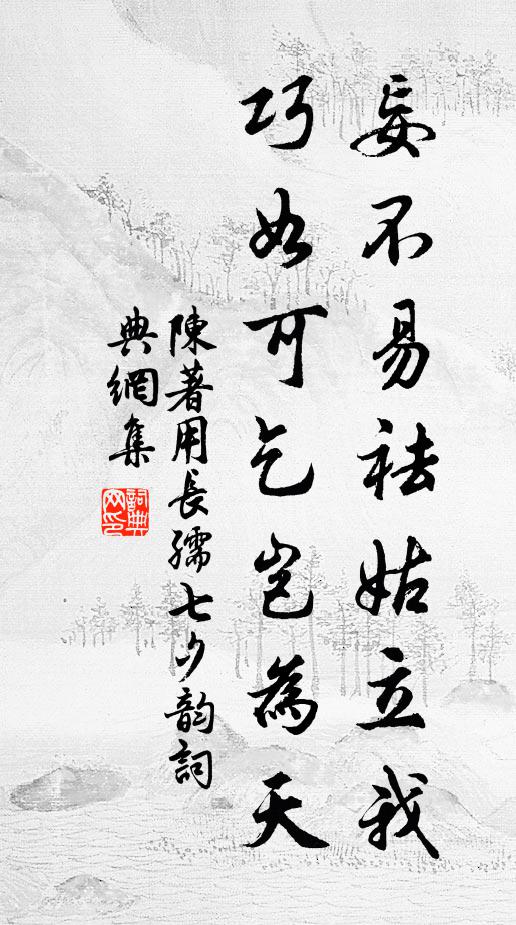 妄不易袪姑立我
巧如可乞豈為天
陳著用長孺七夕韵詞
典網集
詞典网印